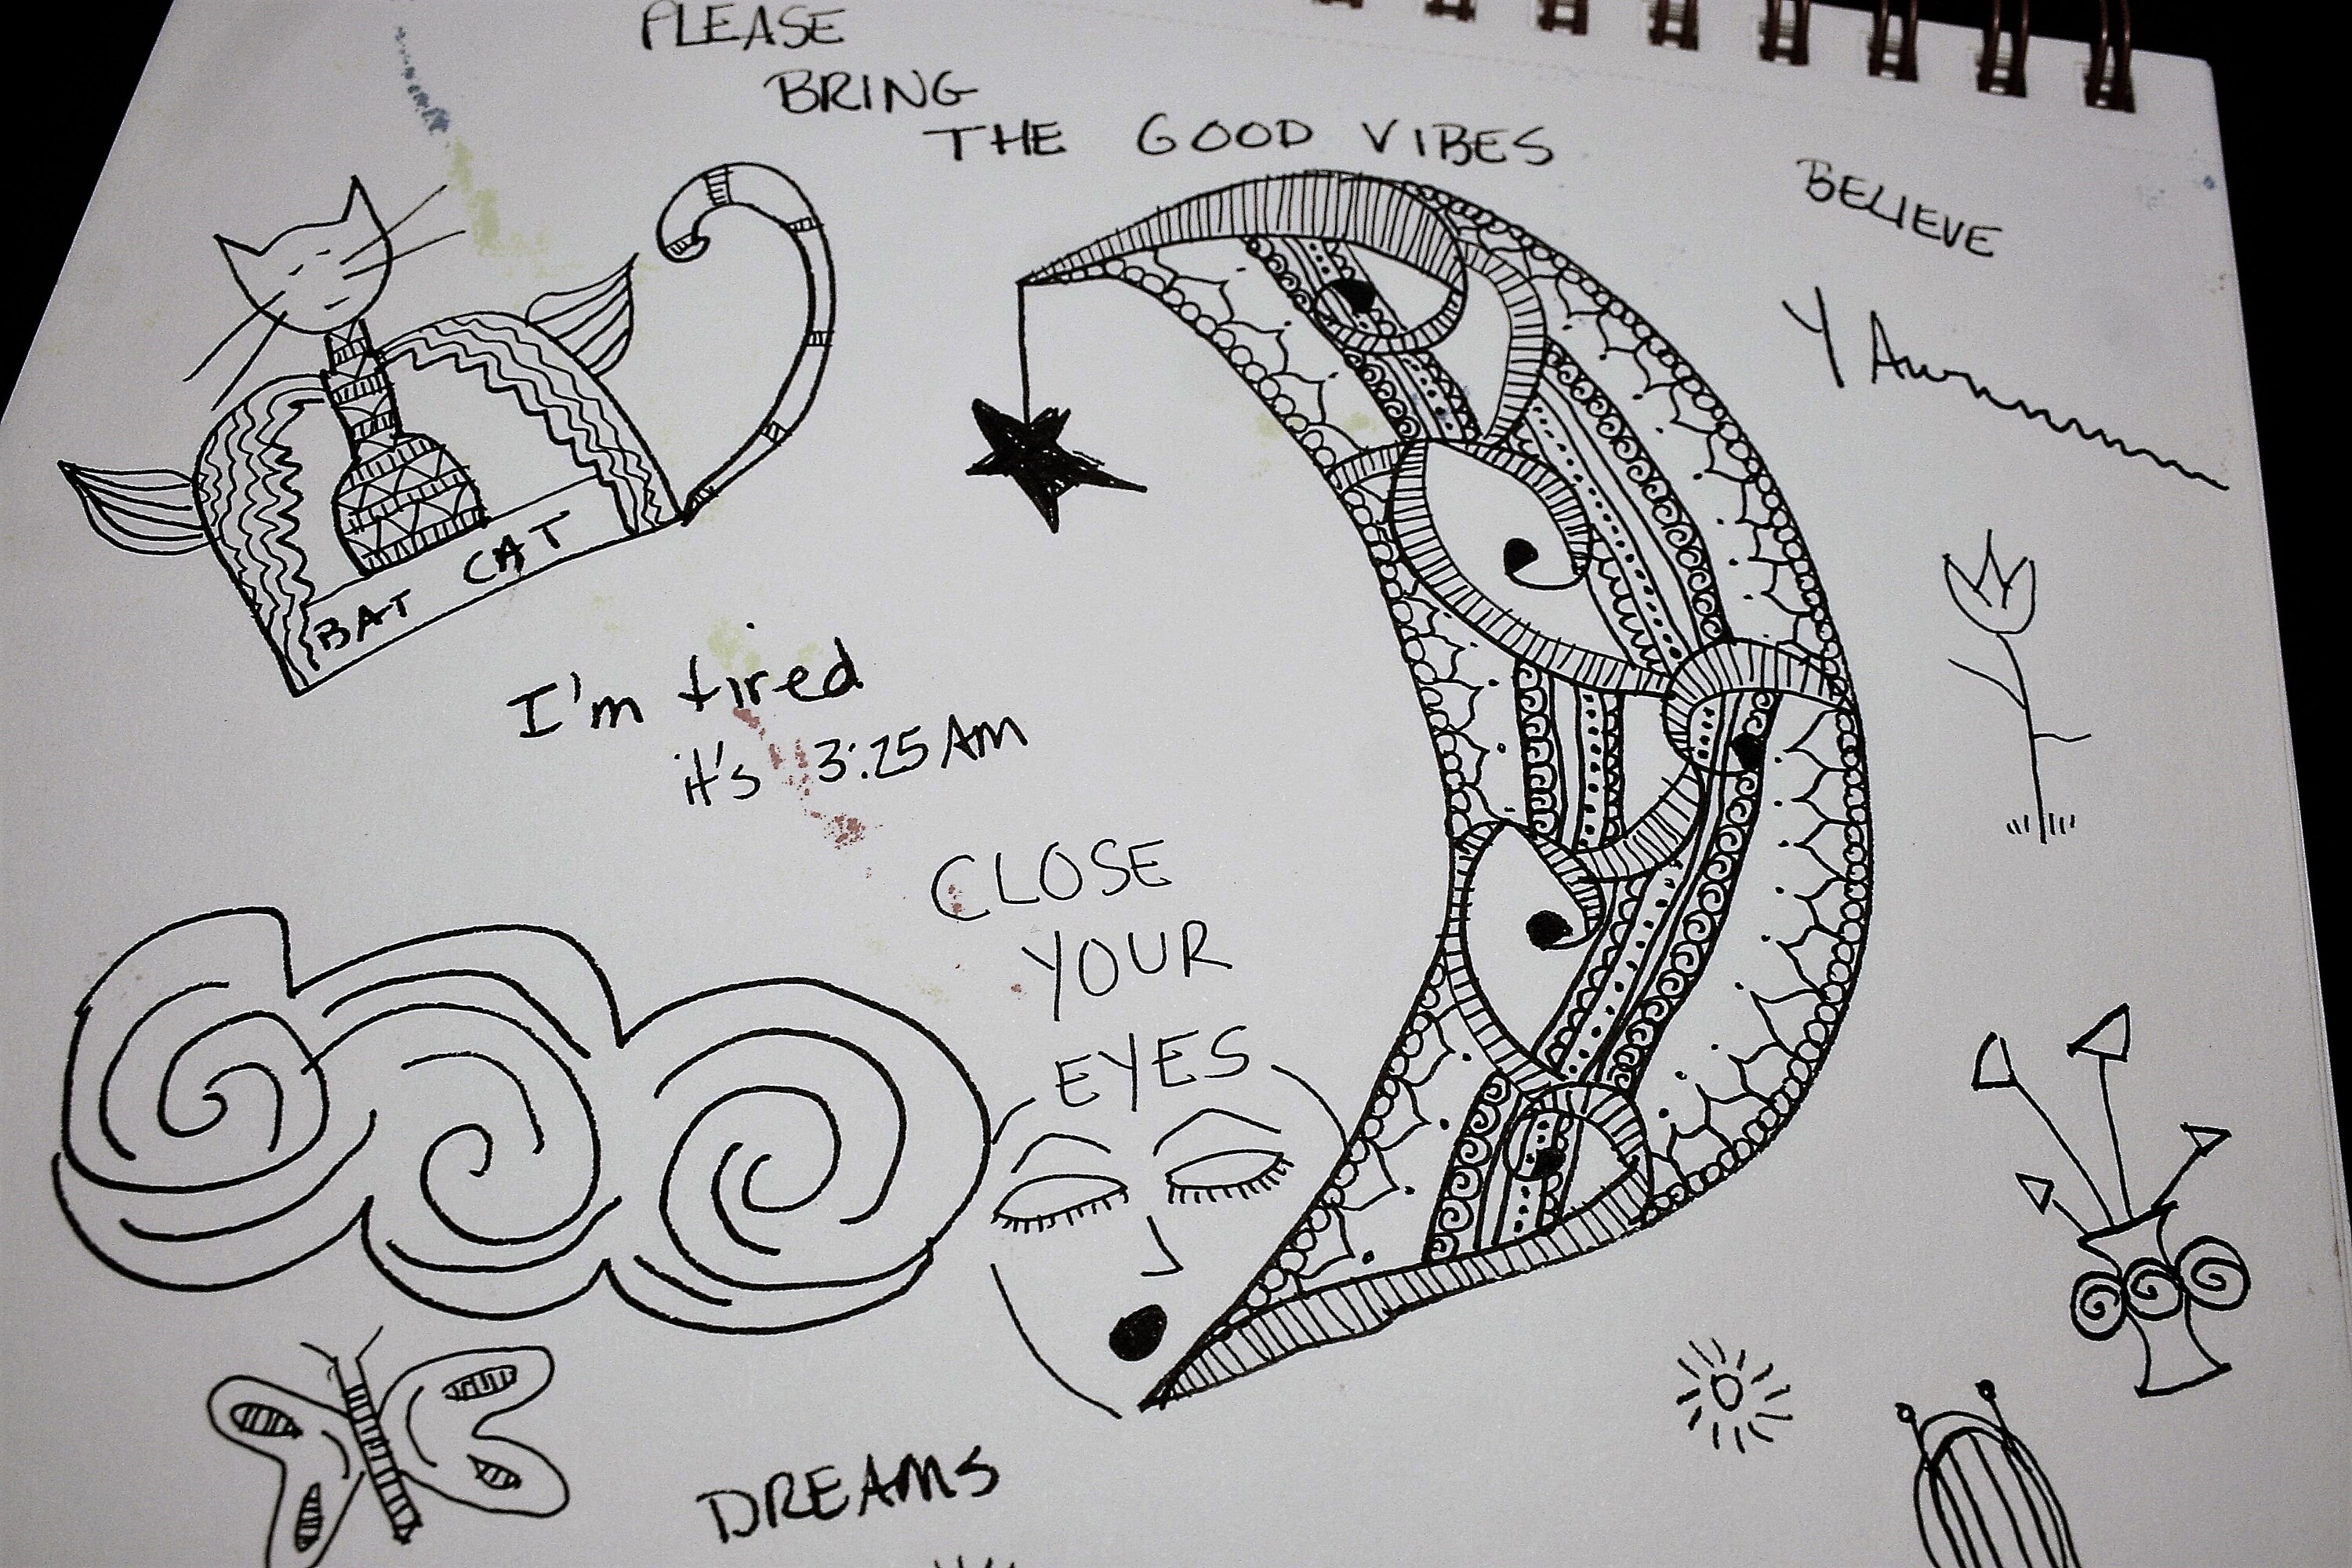 PLEASE
BRING
THE GOOD VIBES
BELIEVE
YAwnnnnnnn
BAT CAT
I'm tired
it's 3:25 AM
CLOSE
YOUR
EYES
DREAMS